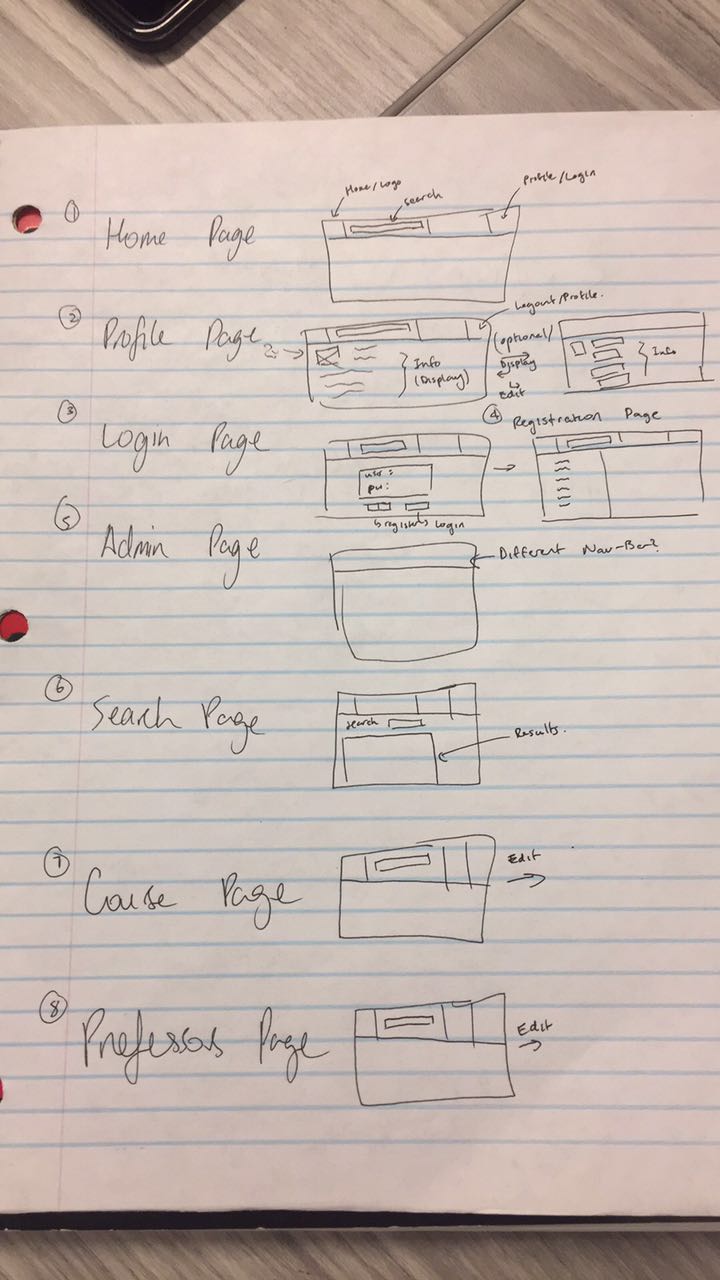 ① Home Page
Home/Logo
search
Profile/Login
② Profile Page
Logout/Profile.
Info
(Display)
(optional)
Display
Edit
Info
③ Login Page
user:
pw:
register
Login
④ Registration Page
⑤ Admin Page
Different Nav-Bar?
⑥ Search Page
search
Results.
⑦ Course Page
Edit
⑧ Professor Page
Edit